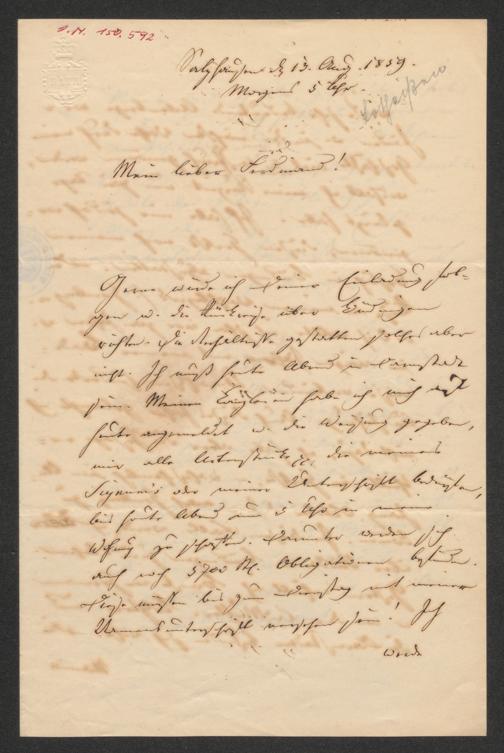 I.N. 150.592
Salzhausen d. 13. Aug. 1859.
Morgens 5 Uhr.
Mein lieber Ferdinand!
Gerne würde ich Deiner Einladung fol-
gen u. die Rückreise über Büdingen
richten. Die Verhältnisse gestatten solches aber
nicht. Ich muß heute Abend in Darmstadt
sein. Meinen habe ich mich auf
heute angemeldet u. die Weisung gegeben,
mir alle die meines
oder meiner Unterschrift bedürfen,
bis heute Abend um 5 Uhr in meine
zu schaffen. Darunter werden sich
auch noch 5700 St. Obligationen befinden.
Diese müssen bis zum Dienstag mit meiner
Namensunterschrift versehen sein! Ich
werde